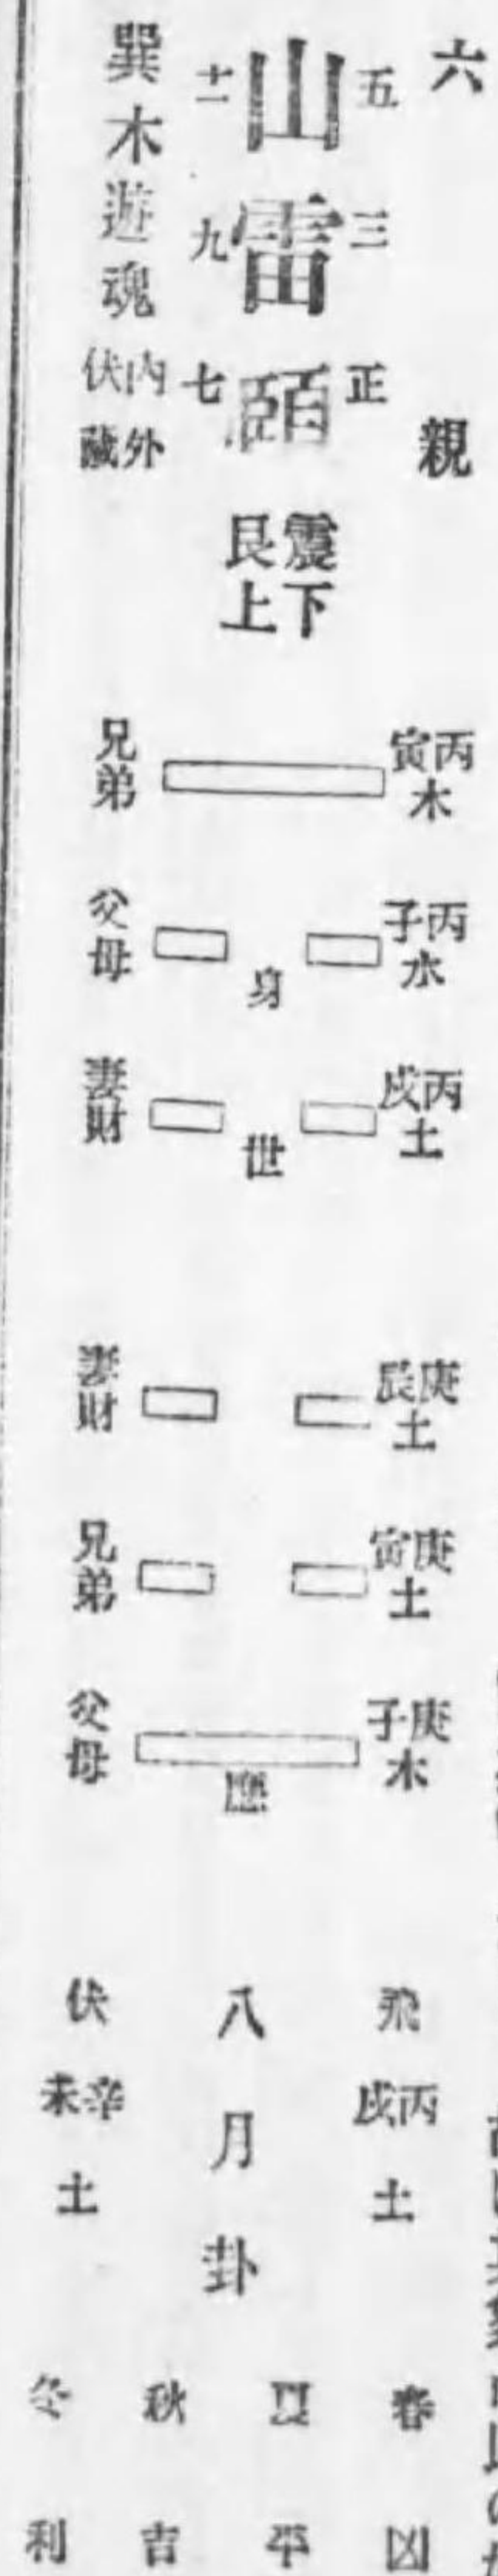 六親
五 三 正
山雷頤
十一 九 七
震下
艮上
巽木遊魂
內外
伏藏
丙寅木 兄弟
丙子水 身 父母
丙戌土 世 妻財
庚辰土 妻財
庚寅土 兄弟
庚子木 應 父母
飛 丙戌土
八月卦
伏 辛未土
春凶
夏平
秋吉
冬利